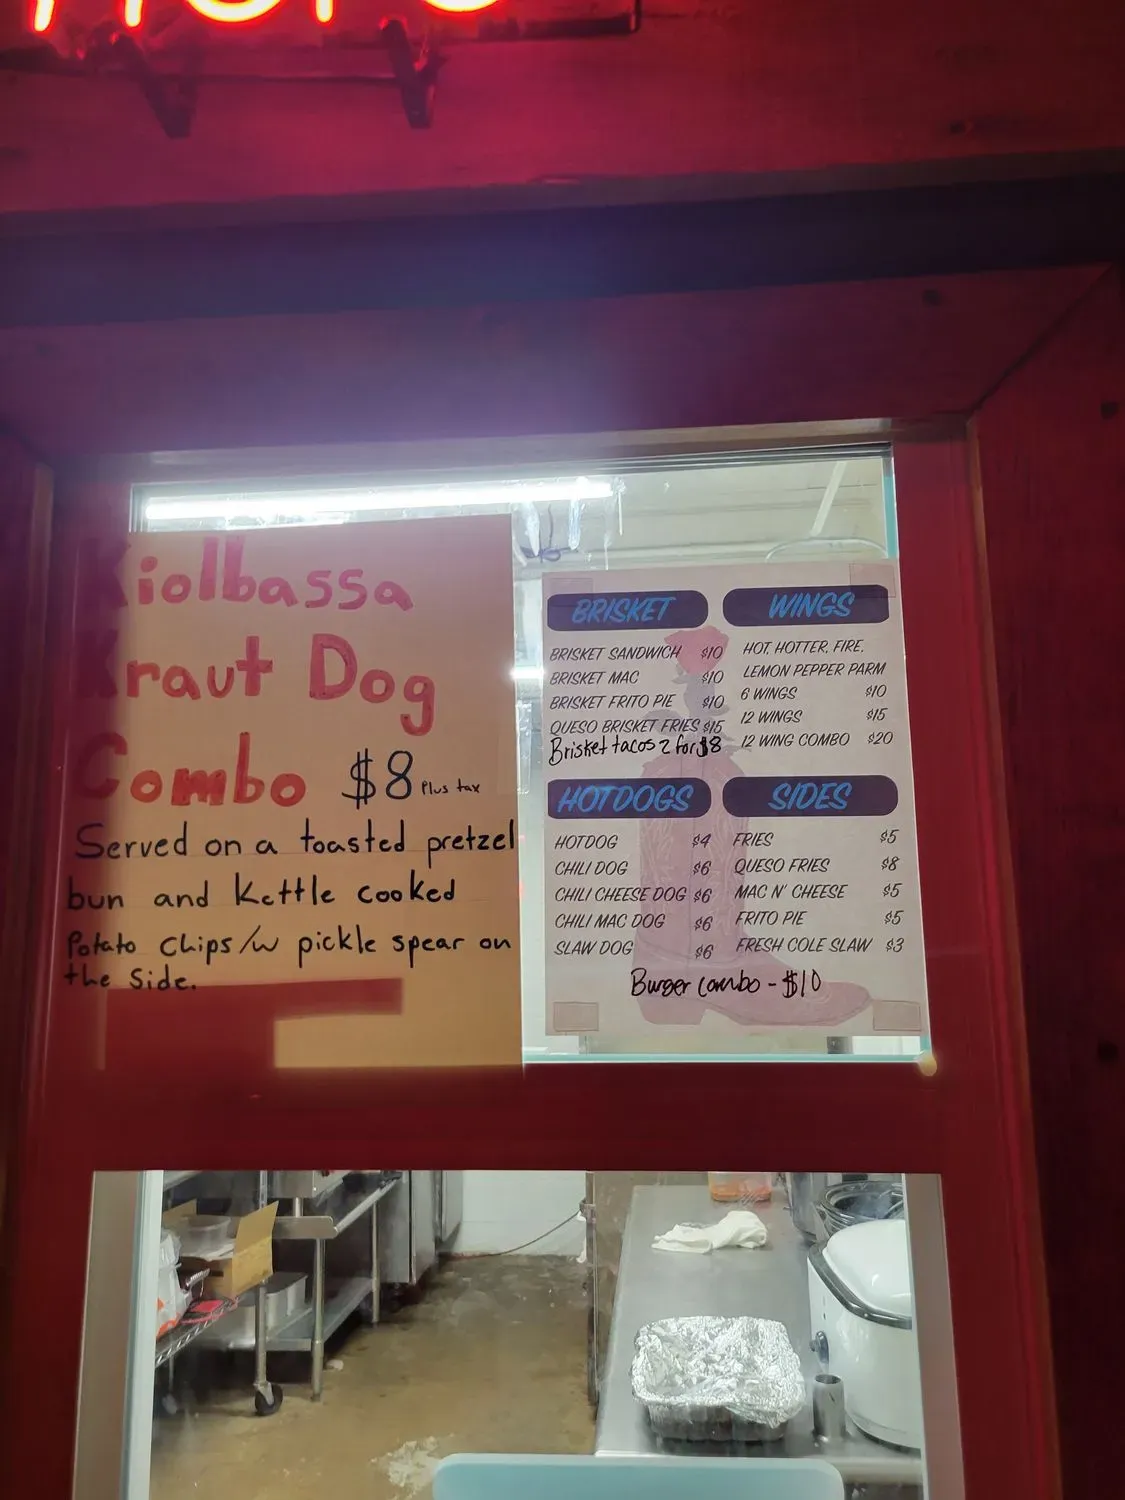 Kiolbassa
Kraut Dog
Combo $8 Plus tax
Served on a toasted pretzel
bun and Kettle cooked
Potato chips/w pickle spear on
the side.
BRISKET
BRISKET SANDWICH $10
BRISKET MAC $10
BRISKET FRITO PIE $10
QUESO BRISKET FRIES $15
Brisket tacos 2 for $8
WINGS
HOT, HOTTER, FIRE,
LEMON PEPPER PARM
6 WINGS $10
12 WINGS $15
12 WING COMBO $20
HOTDOGS
HOTDOG $4
CHILI DOG $6
CHILI CHEESE DOG $6
CHILI MAC DOG $6
SLAW DOG $6
SIDES
FRIES $5
QUESO FRIES $8
MAC N' CHEESE $5
FRITO PIE $5
FRESH COLE SLAW $3
Burger combo - $10